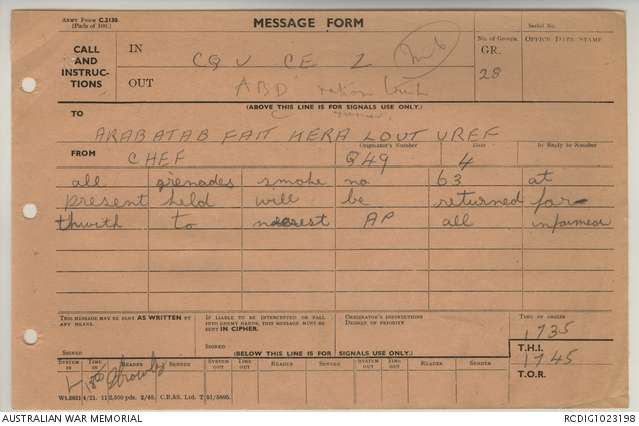 ARMY FORM C.2136
(Pads of 100.)
MESSAGE FORM
Serial No.
CALL AND INSTRUCTIONS
IN
CQ V CE Z
No. of Groups.
GR.
28
OFFICE DATE STAMP
OUT
ABD ration
(ABOVE THIS LINE IS FOR SIGNALS USE ONLY.)
TO
ARAB ATAB FAIT KERA LOUT UREF
FROM
CHEF
Originator's Number
Q49
Date
4
In Reply to Number
all grenades smoke no 63 at
present held will be returned for-
thwith to nearest AP all informed
THIS MESSAGE MAY BE SENT AS WRITTEN BY ANY MEANS.
SIGNED
IF LIABLE TO BE INTERCEPTED OR FALL INTO ENEMY HANDS, THIS MESSAGE MUST BE SENT IN CIPHER.
SIGNED
ORIGINATOR'S INSTRUCTIONS
DEGREE OF PRIORITY
TIME OF ORIGIN
1735
T.H.I.
1745
T.O.R.
(BELOW THIS LINE IS FOR SIGNALS USE ONLY.)
SYSTEM IN
TIME IN
READER
SENDER
SYSTEM OUT
TIME OUT
READER
SENDER
SYSTEM OUT
TIME OUT
READER
SENDER
AUSTRALIAN WAR MEMORIAL
RCDIG1023198